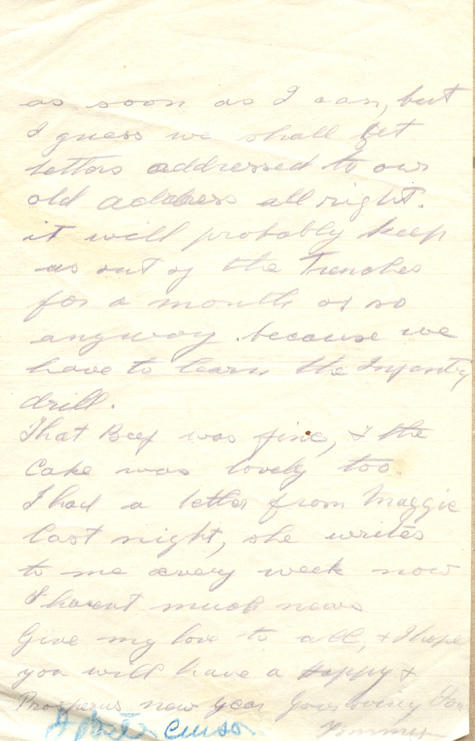 as soon as I can, but
I guess we shall get
letters addressed to our
old address all right.
it will probably keep
us out of the Trenches
for a month or so
anyway. because we
have to learn the Infantry
drill.
That Beef was fine, & the
Cake was lovely too.
I had a letter from Maggie
last night, she writes
to me every week now
I havent much news
Give my love to all, & I hope
you will have a Happy &
Prosperus new year Your loving Son
censor